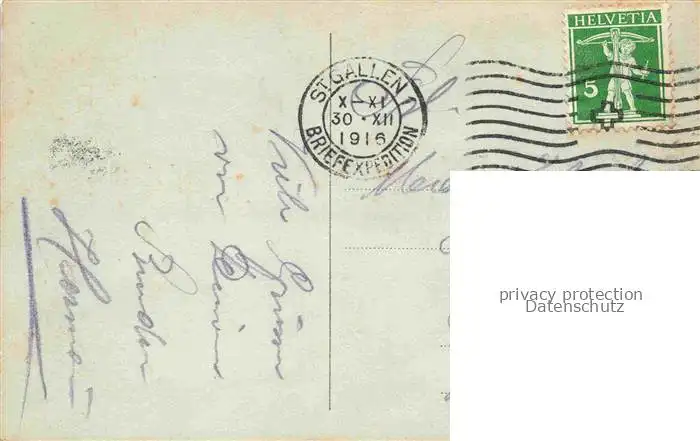 HELVETIA
5
ST. GALLEN 1
X–XI
30·XII
1916
BRIEFEXPEDITION
Viele Grüsse
von Deinem
Bruder
Hermann
privacy protection
Datenschutz